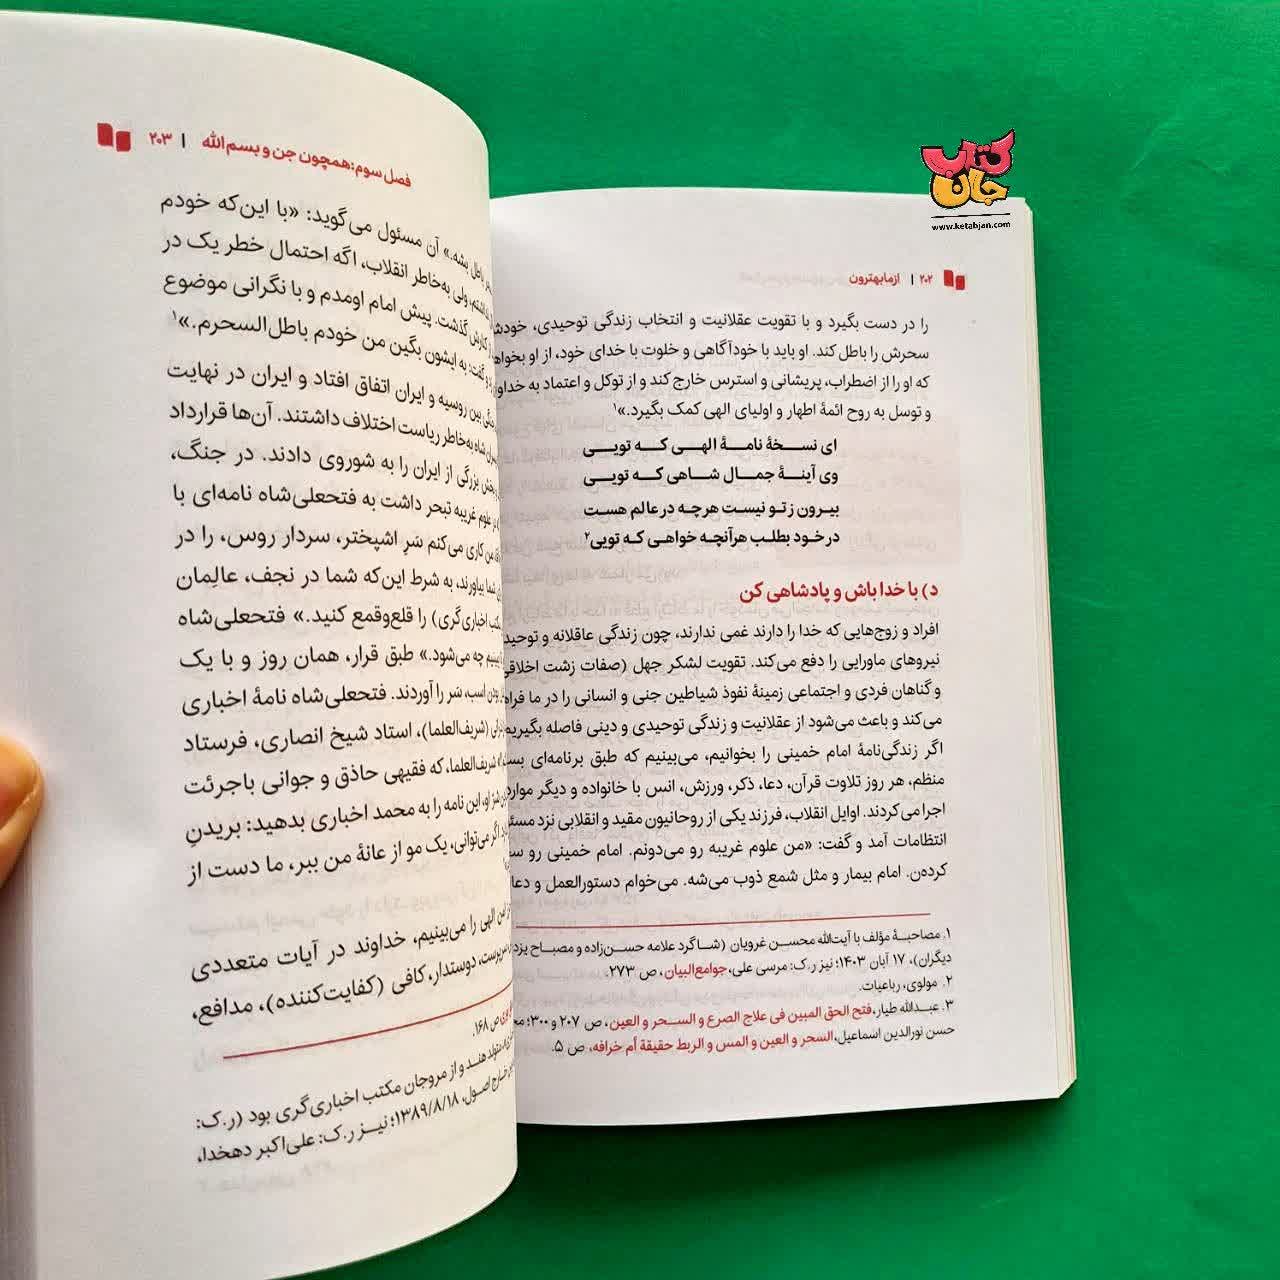 کتاب جان
www.ketabjan.com
۲۰۲ | ازمابهترون
را در دست بگیرد و با تقویت عقلانیت و انتخاب زندگی توحیدی، خودش
سحرش را باطل کند. او باید با خودآگاهی و خلوت با خدای خود، از او بخواهد
که او را از اضطراب، پریشانی و استرس خارج کند و از توکل و اعتماد به خداوند
و توسل به روح ائمهٔ اطهار و اولیای الهی کمک بگیرد.»۱
ای نسخهٔ نامهٔ الهی که تویی
وی آینهٔ جمال شاهی که تویی
بیرون ز تو نیست هرچه در عالم هست
در خود بطلب هرآنچه خواهی که تویی۲
د) با خدا باش و پادشاهی کن
افراد و زوج‌هایی که خدا را دارند غمی ندارند، چون زندگی عاقلانه و توحیدی
نیروهای ماورایی را دفع می‌کند. تقویت لشکر جهل (صفات زشت اخلاقی
و گناهان فردی و اجتماعی زمینهٔ نفوذ شیاطین جنی و انسانی را در ما فراهم
می‌کند و باعث می‌شود از عقلانیت و زندگی توحیدی و دینی فاصله بگیریم.
اگر زندگی‌نامهٔ امام خمینی را بخوانیم، می‌بینیم که طبق برنامه‌ای
منظم، هر روز تلاوت قرآن، دعا، ذکر، ورزش، انس با خانواده و دیگر موارد
اجرا می‌کردند. اوایل انقلاب، فرزند یکی از روحانیون مقید و انقلابی نزد
انتظامات آمد و گفت: «من علوم غریبه رو می‌دونم. امام خمینی رو
کرده‌ن. امام بیمار و مثل شمع ذوب می‌شه. می‌خوام دستورالعمل و
۱. مصاحبهٔ مؤلف با آیت‌الله محسن غرویان (شاگرد علامه حسن‌زاده و مصباح
دیگران)، ۱۷ آبان ۱۴۰۳؛ نیز ر.ک: مرسی علی، جوامع‌البیان، ص ۲۷۳.
۲. مولوی، رباعیات.
۳. عبدالله طیار، فتح الحق المبین فی علاج الصرع و السحر و العین، ص ۲۰۷ و ۳۰۰؛
حسن نورالدین اسماعیل، السحر و العین و المس و الربط حقیقة أم خرافه، ص ۵.
فصل سوم: همچون جن و بسم‌الله | ۲۰۳
باطل بشه.» آن مسئول می‌گوید: «با این‌که خودم
ولی به‌خاطر انقلاب، اگه احتمال خطر یک در
گذشت. پیش امام اومدم و با نگرانی موضوع
گفت: به ایشون بگین من خودم باطل‌السحرم.»۱
بین روسیه و ایران اتفاق افتاد و ایران در نهایت
شاه به‌خاطر ریاست اختلاف داشتند. آن‌ها قرارداد
بخش بزرگی از ایران را به شوروی دادند. در جنگ،
علوم غریبه تبحر داشت به فتحعلی‌شاه نامه‌ای با
من کاری می‌کنم سَرِ اشپختر، سردار روس، را در
شما بیاورند، به شرط این‌که شما در نجف، عالِمان
مکتب اخباری‌گری) را قلع‌وقمع کنید.» فتحعلی‌شاه
ببینیم چه می‌شود.» طبق قرار، همان روز و با یک
اسب، سَر را آوردند. فتحعلی‌شاه نامهٔ اخباری
(شریف‌العلما)، استاد شیخ انصاری، فرستاد
شریف‌العلما، که فقیهی حاذق و جوانی باجرئت
او، این نامه را به محمد اخباری بدهید: بریدنِ
اگر می‌توانی، یک مو از عانهٔ من ببر، ما دست از
امن الهی را می‌بینیم، خداوند در آیات متعددی
سرپرست، دوستدار، کافی (کفایت‌کننده)، مدافع،
ص ۱۶۸.
متولد هند و از مروجان مکتب اخباری‌گری بود (ر.ک:
خارج اصول، ۱۳۸۹/۸/۱۸؛ نیز ر.ک: علی‌اکبر دهخدا،